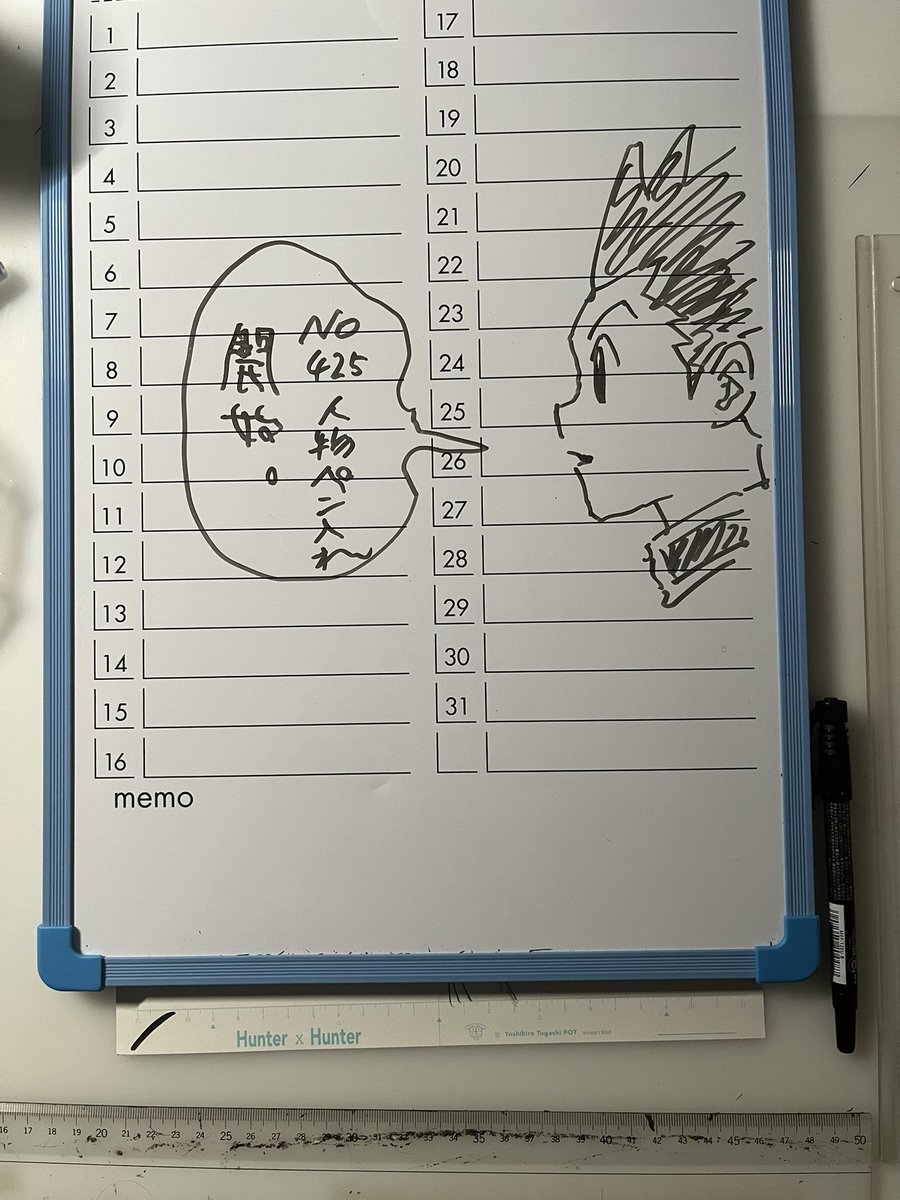 1
2
3
4
5
6
7
8
9
10
11
12
13
14
15
16
17
18
19
20
21
22
23
24
25
26
27
28
29
30
31
NO 425 人物ペン入れ
開始。
memo
Hunter x Hunter
© Yoshihiro Togashi POT
16 17 18 19 20 21 22 23 24 25 26 27 28 29 30 31 32 33 34 35 36 37 38 39 40 41 42 43 44 45 46 47 48 49 50